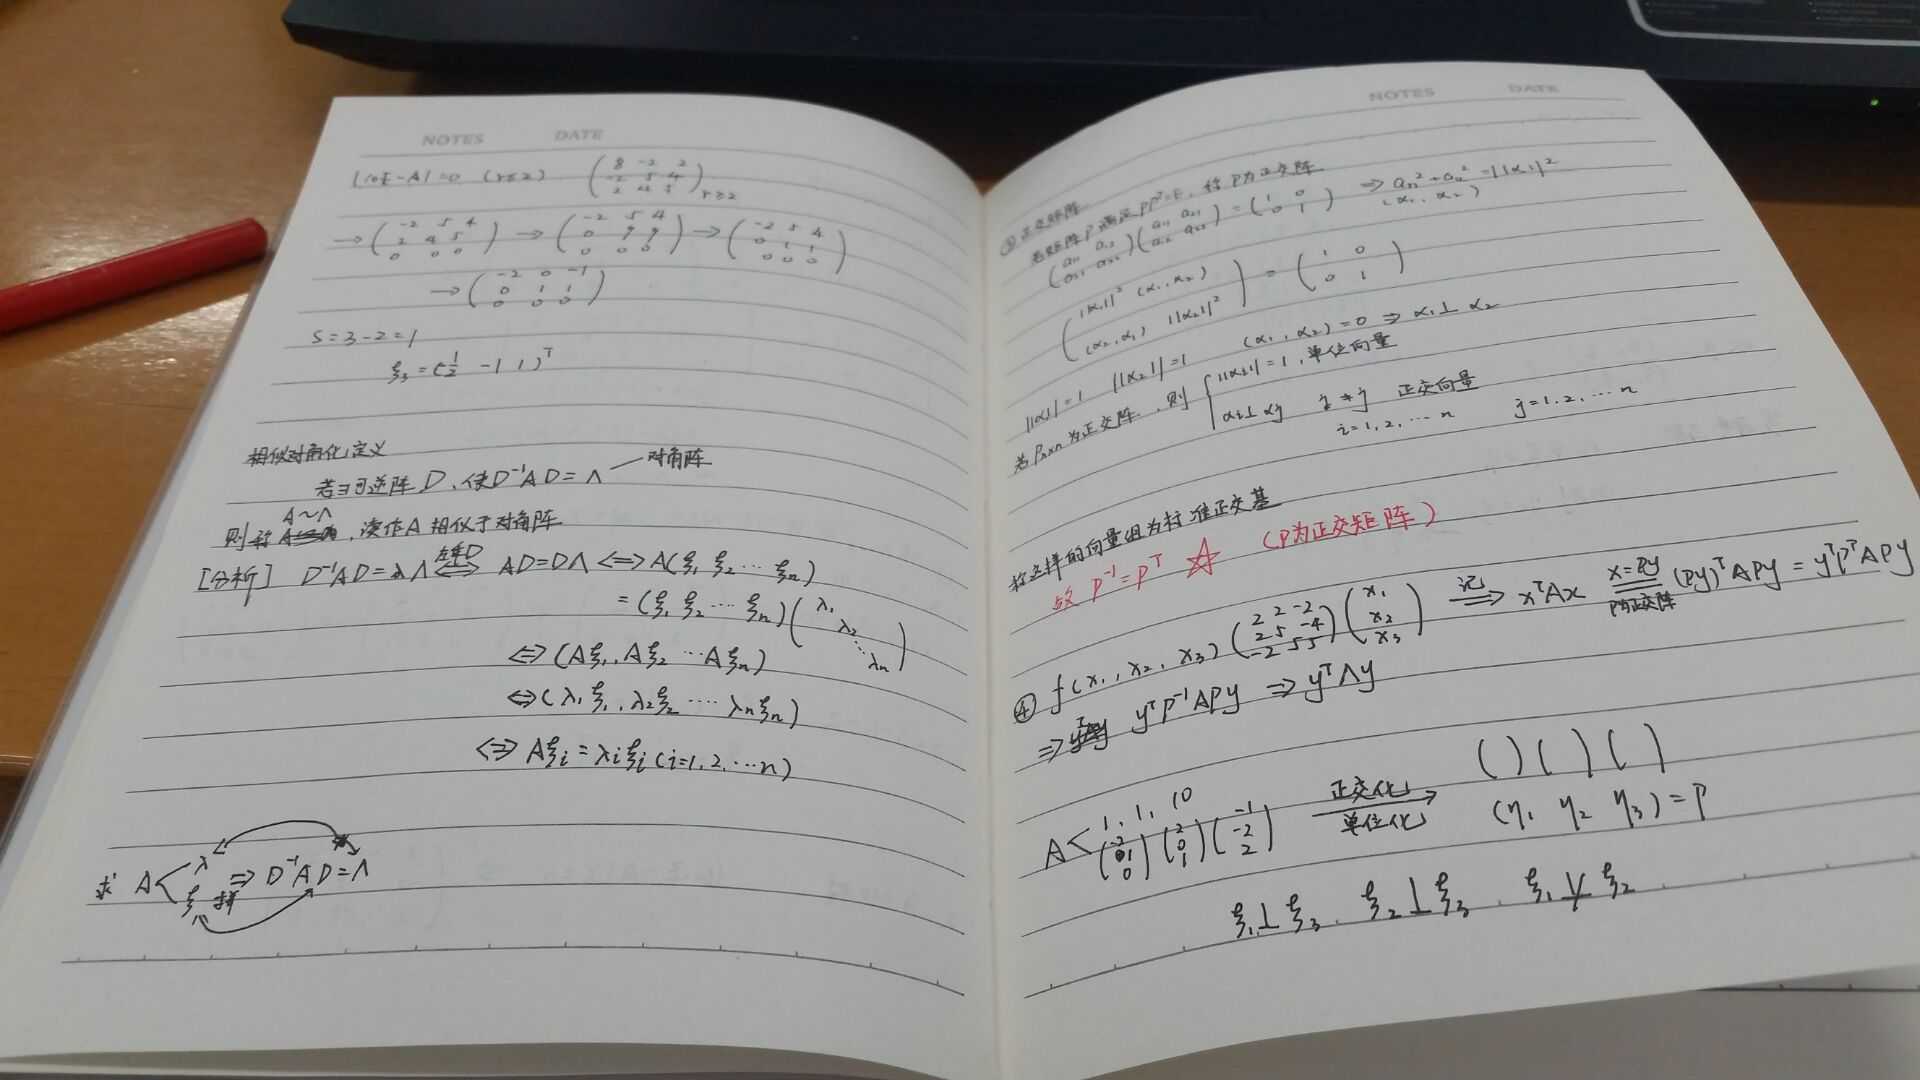 NOTES DATE
|10E-A|=0 (r≤2) (8 -2 2; -2 5 4; 2 4 5) r≥2
→ (-2 5 4; 2 4 5; 0 0 0) → (-2 5 4; 0 9 9; 0 0 0) → (-2 5 4; 0 1 1; 0 0 0)
→ (-2 0 -1; 0 1 1; 0 0 0)
S=3-2=1
ξ₃=(-½ -1 1)ᵀ
相似对角化定义
若∃可逆阵D,使D⁻¹AD=Λ — 对角阵
A~Λ
则称 ,读作A相似于对角阵
[分析] D⁻¹AD=λΛ ⇔ AD=DΛ ⇔ A(ξ₁ ξ₂ … ξn)
=(ξ₁ ξ₂ … ξn)(λ₁ λ₂ ⋱ λn)
⇔(Aξ₁,Aξ₂ …Aξn)
⇔(λ₁ξ₁,λ₂ξ₂ …. λnξn)
⇔ Aξi=λiξi(i=1,2,…n)
求 A< λ ξ 拼 ⇒ D⁻¹AD=Λ
NOTES DATE
③正交矩阵
若矩阵P满足PPᵀ=E,称P为正交阵
(a₁₁ a₁₂; a₂₁ a₂₂)(a₁₁ a₂₁; a₁₂ a₂₂)=(1 0; 0 1) ⇒
(α₁,α₂)
(||α₁||² (α₁,α₂); (α₂,α₁) ||α₂||²)=(1 0; 0 1)
||α₁||=1 ||α₂||=1 (α₁,α₂)=0 ⇒ α₁⊥α₂
若Pn×n为正交阵,则 { ||αi||=1,单位向量
αi⊥αj i≠j 正交向量
i=1,2,…n j=1,2,…n
称这样的向量组为标准正交基
故 P⁻¹=Pᵀ ☆ (P为正交矩阵)
④ f(x₁,x₂,x₃)(2 2 -2; 2 5 -4; -2 5 5)(x₁; x₂; x₃) 记⇒ xᵀAx x=Py P为正交阵 (Py)ᵀAPy=yᵀPᵀAPy
⇒ yᵀP⁻¹APy ⇒ yᵀΛy
A< 1,1,10 (-2; 1; 0)(2; 0; 1)(-1; -2; 2) 正交化 单位化 → ( )( )( )
(η₁ η₂ η₃)=P
ξ₁⊥ξ₃. ξ₂⊥ξ₃. ξ₁⊥̸ξ₂